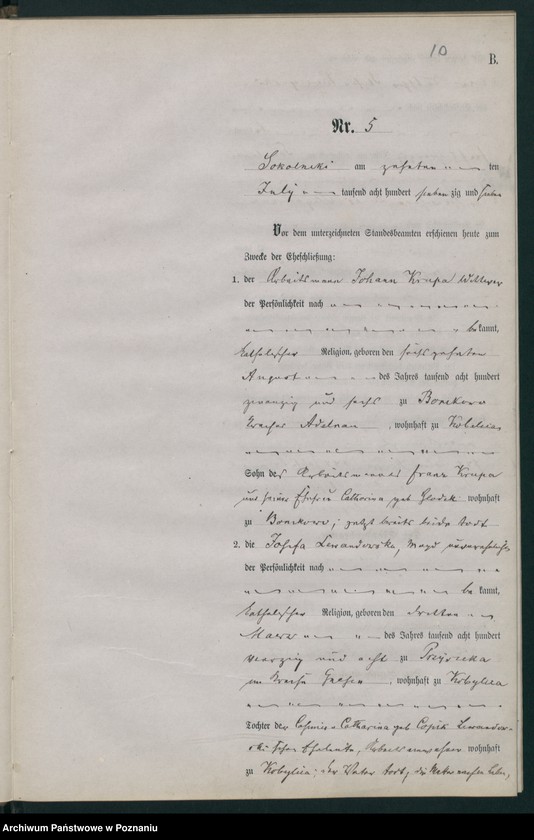 10
B.
Nr. 5
Sokolniki am zehnten ten
July tausend acht hundert sieben zig und sieben
Vor dem unterzeichneten Standesbeamten erschienen heute zum
Zwecke der Eheschließung:
1. der Arbeitsmann Johann Krupa Wittwer
der Persönlichkeit nach
be kannt,
katholischer Religion, geboren den sechszehnten
August des Jahres tausend acht hundert
zwanzig und sechs zu Bonikowo
Kreises Adelnau, wohnhaft zu
Sohn des Arbeitsmannes Franz Krupa
und seiner Ehefrau Catharina geb wohnhaft
zu Bonikowo, jetzt bereits beide todt
2. die Josefa Lewandowska, Magd unverehelicht
der Persönlichkeit nach
be kannt,
katholischer Religion, geboren den dritten
Maerz des Jahres tausend acht hundert
vierzig und acht zu
im Kreise Gnesen, wohnhaft zu Kobylica
Tochter der Casimir u Catharina geb Lewandow-
ski schen Eheleute, wohnhaft
zu Kobylica; der Vater todt, die Mutter
Archiwum Państwowe w Poznaniu